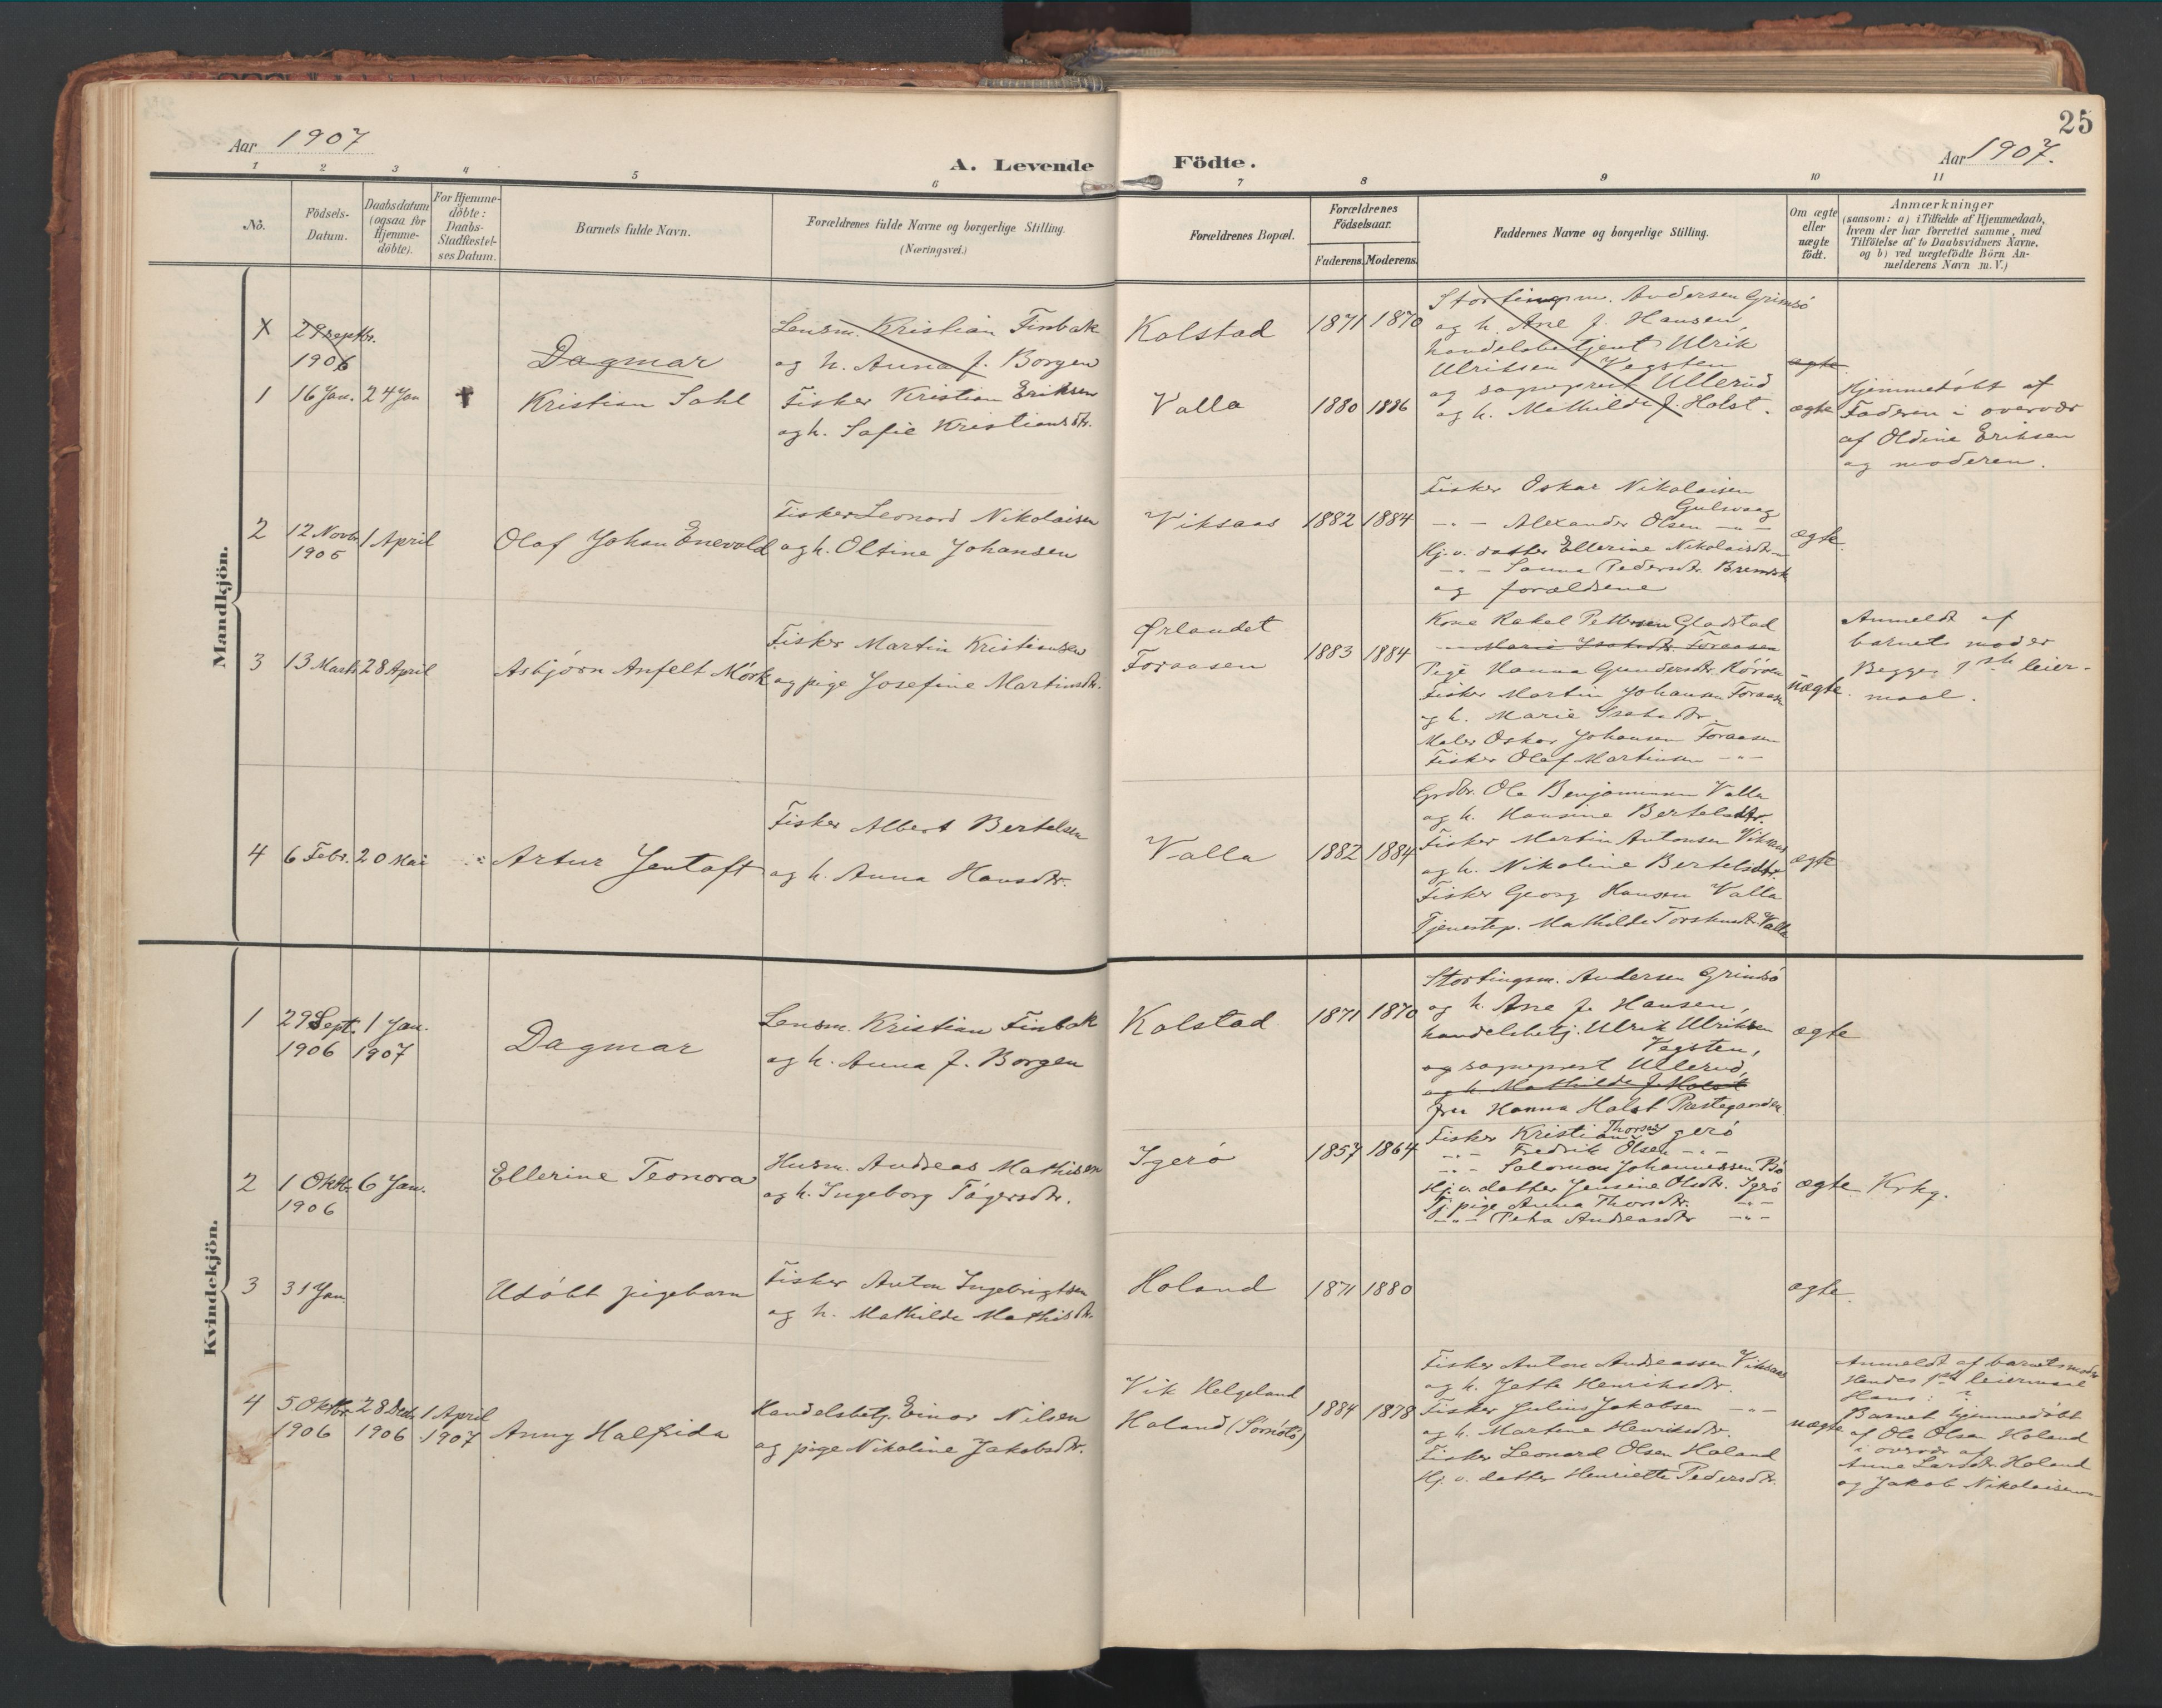 25
Aar 1907
A. Levende Födte.
Aar 1907.
1 2 3 4 5 6 7 8 9 10 11
No.
Födsels-
Datum.
Daabsdatum
(ogsaa for
Hjemme-
döbte).
For Hjemme-
döbte:
Daabs-
Stadfæstel-
ses Datum.
Barnets fulde Navn.
Forældrenes fulde Navne og borgerlige Stilling.
(Næringsvei.)
Forældrenes Bopæl.
Forældrenes
Födselsaar.
Faderens. Moderens.
Faddernes Navne og borgerlige Stilling.
Om ægte
eller
uægte
födt.
Anmærkninger
(saasom: a) i Tilfælde af Hjemmedaab,
hvem der har forrettet samme, med
Tilföielse af to Daabsvidners Navne.
og b) ved uægtefödte Börn An-
melderens Navn m. V.)
Mandkjön.
X
29 septbr.
1906
Dagmar
Lensm. Kristian Finbak
og h. Anna f. Borgen
Kolstad
1871 1870
Stortingsm. Andersen Grimsö
og h. Ane f. Hansen,
handelsbetjent Ulrik
Ulriksen Vegsten
og sogneprest Ullerud
og h. Mathilde f. Holst.
ægte
1
16 Jan. 24 Jan
✝
Kristian Dahl
Fisker Kristian Eriksen
og h. Sofie Kristiansdtr.
Valla
1880 1886
ægte
Hjemmedöbt af
Faderen i overvær
af Oldine Eriksen
og moderen.
2
12 Novbr. 1 April
1906
Olaf Johan Enevold
Fisker Leonard Nikolaisen
og h. Oltine Johansen
Viksaas
1882 1884
Fisker Oskar Nikolaisen
Gulsvaag
-"- Alexander Olsen -"-
Hj. v. datter Ellerine Nikolaisdtr.
-"- Sanna Pedersdtr.
og forældrene
ægte.
3
13 Marts 28 April
Asbjørn Anfelt Mörk
Fisker Martin Kristiansen
og pige Josefine Martinsdtr.
Ørlandet
Foraasen
1883 1884
Kone Rakel Pettersen Gladstad
Marie Isaksdtr. Foraasen
Pige Hanna Gundersdtr.
Fisker Martin Johansen Foraasen
og h. Marie Isaksdtr.
Maler Oskar Johansen Foraasen
Fisker Olaf Martinsen -"-
uægte.
Anmeldt af
barnets moder
Begges 1ste leier-
maal.
4
6 Febr. 20 Mai
Artur Jentoft
Fisker Albert Bertelsen
og h. Anna Hansdtr.
Valla
1882 1884
Grdbr. Ole Benjaminsen Valla
og h. Hansine Bertelsdtr.
Fisker Martin Antonsen Viksaas
og h. Nikoline Bertelsdtr.
Fisker Georg Hansen Valla
Tjenestep. Mathilde Valla
ægte
Kvindekjön.
1
29 Sept. 1 Jan.
1906 1907
Dagmar
Lensm. Kristian Finbak
og h. Anna f. Borgen
Kolstad
1871 1870
Stortingsm. Andersen Grimsö
og h. Ane f. Hansen,
handelsbetj. Ulrik Ulriksen
Vegsten,
og sogneprest Ullerud,
og h. Mathilde f. Holst
fru Hanna Holst Prestegaarden
ægte
2
1 Oktbr. 6 Jan.
1906
Ellerine Teonora
Husm. Andreas Mathisen
og h. Ingeborg Tögersdtr.
Igerö
1857 1864
Fisker Kristian Thorsen Igerö
-"- Fredrik Olsen -"-
-"- Salomon Johannessen Bö
Hj. v. datter Jensine Olsdtr. Igerö
Tj. pige Anna Thorsdtr. -"-
-"- Petra Andreasdtr -"-
ægte
Krkg.
3
31 Jan.
Udöbt pigebarn
Fisker Anton Ingebrigtsen
og h. Mathilde Mathisdtr.
Holand
1871 1880
ægte.
4
5 Oktbr. 28 Decbr. 1 April
1906 1906 1907
Anny Halfrida
Handelsbetj. Einar Nilsen
og pige Nikoline Jakobsdtr.
Vik Helgeland
Holand (Sömnes)
1884 1878
Fisker Anton Andreassen Viksaas
og h. Jette Henriksdtr.
Fisker Julius Jakobsen -"-
og h. Martine Henriksdtr.
Fisker Leonard Olsen Holand
Hj. v. datter Henriette Pedersdtr.
uægte
Anmeldt af barnets moder
Hendes 1ste leiermaal
Hans: ?
Barnet hjemmedöbt
af Ole Olsen Holand
i overvær af
Anne Larsdtr. Holand
og Jakob Nikolaisen